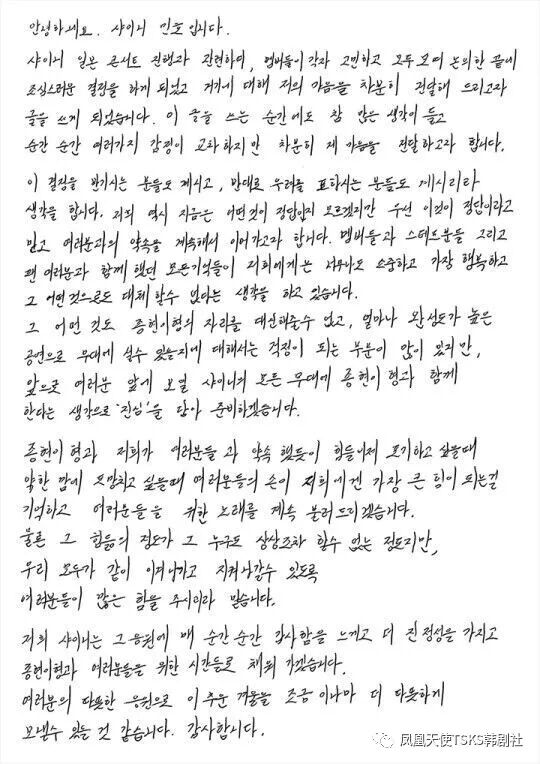 안녕하세요. 샤이니 민호입니다.
샤이니 일본 콘서트 진행과 관련하여, 멤버들이 각자 고민하고 모두 모여 논의한 끝에
조심스러운 결정을 하게 되었고 거기에 대해 저의 마음을 차분히 전달해 드리고자
글을 쓰게 되었습니다. 이 글을 쓰는 순간에도 참 많은 생각이 들고
순간 순간 여러가지 감정이 교차하지만 차분히 제 마음을 전달하고자 합니다.
이 결정을 반기시는 분들도 계시고, 반대로 우려를 표하시는 분들도 계시리라
생각을 합니다. 저희 역시 지금은 어떤것이 정답인지 모르겠지만 우선 이것이 정답이라고
믿고 여러분과의 약속을 계속해서 이어가고자 합니다. 멤버들과 스태프분들 그리고
팬 여러분과 함께 했던 모든기억들이 저희에게는 너무나도 소중하고 가장 행복하고
그 어떤것으로도 대체 할수 없다는 생각을 하고 있습니다.
그 어떤 것도 종현이형의 자리를 대신해줄수 없고, 얼마나 완성도가 높은
공연으로 무대에 설수 있을지에 대해서는 걱정이 되는 부분이 많이 있지만,
앞으로 여러분 앞에 보일 샤이니의 모든 무대에 종현이형과 함께
한다는 생각으로 '진심'을 담아 준비하겠습니다.
종현이형과 저희가 여러분들과 약속 했듯이 힘들어서 포기하고 싶을때
약한 맘에 도망치고 싶을때 여러분들의 손이 저희에겐 가장 큰 힘이 되는걸
기억하고 여러분들을 위한 노래를 계속 불러드리겠습니다.
물론 그 힘듦의 정도가 그 누구도 상상조차 할수 없는 정도지만,
우리 모두가 같이 이겨나가고 지켜나갈수 있도록
여러분들이 많은 힘을 주시리라 믿습니다.
저희 샤이니는 그 응원에 매 순간순간 감사함을 느끼고 더 진정성을 가지고
종현이형과 여러분들을 위한 시간들로 채워 가겠습니다.
여러분의 따뜻한 응원으로 이 추운 겨울을 조금이나마 더 따뜻하게
보낼수 있을 것 같습니다. 감사합니다.
凤凰天使TSKS韩剧社